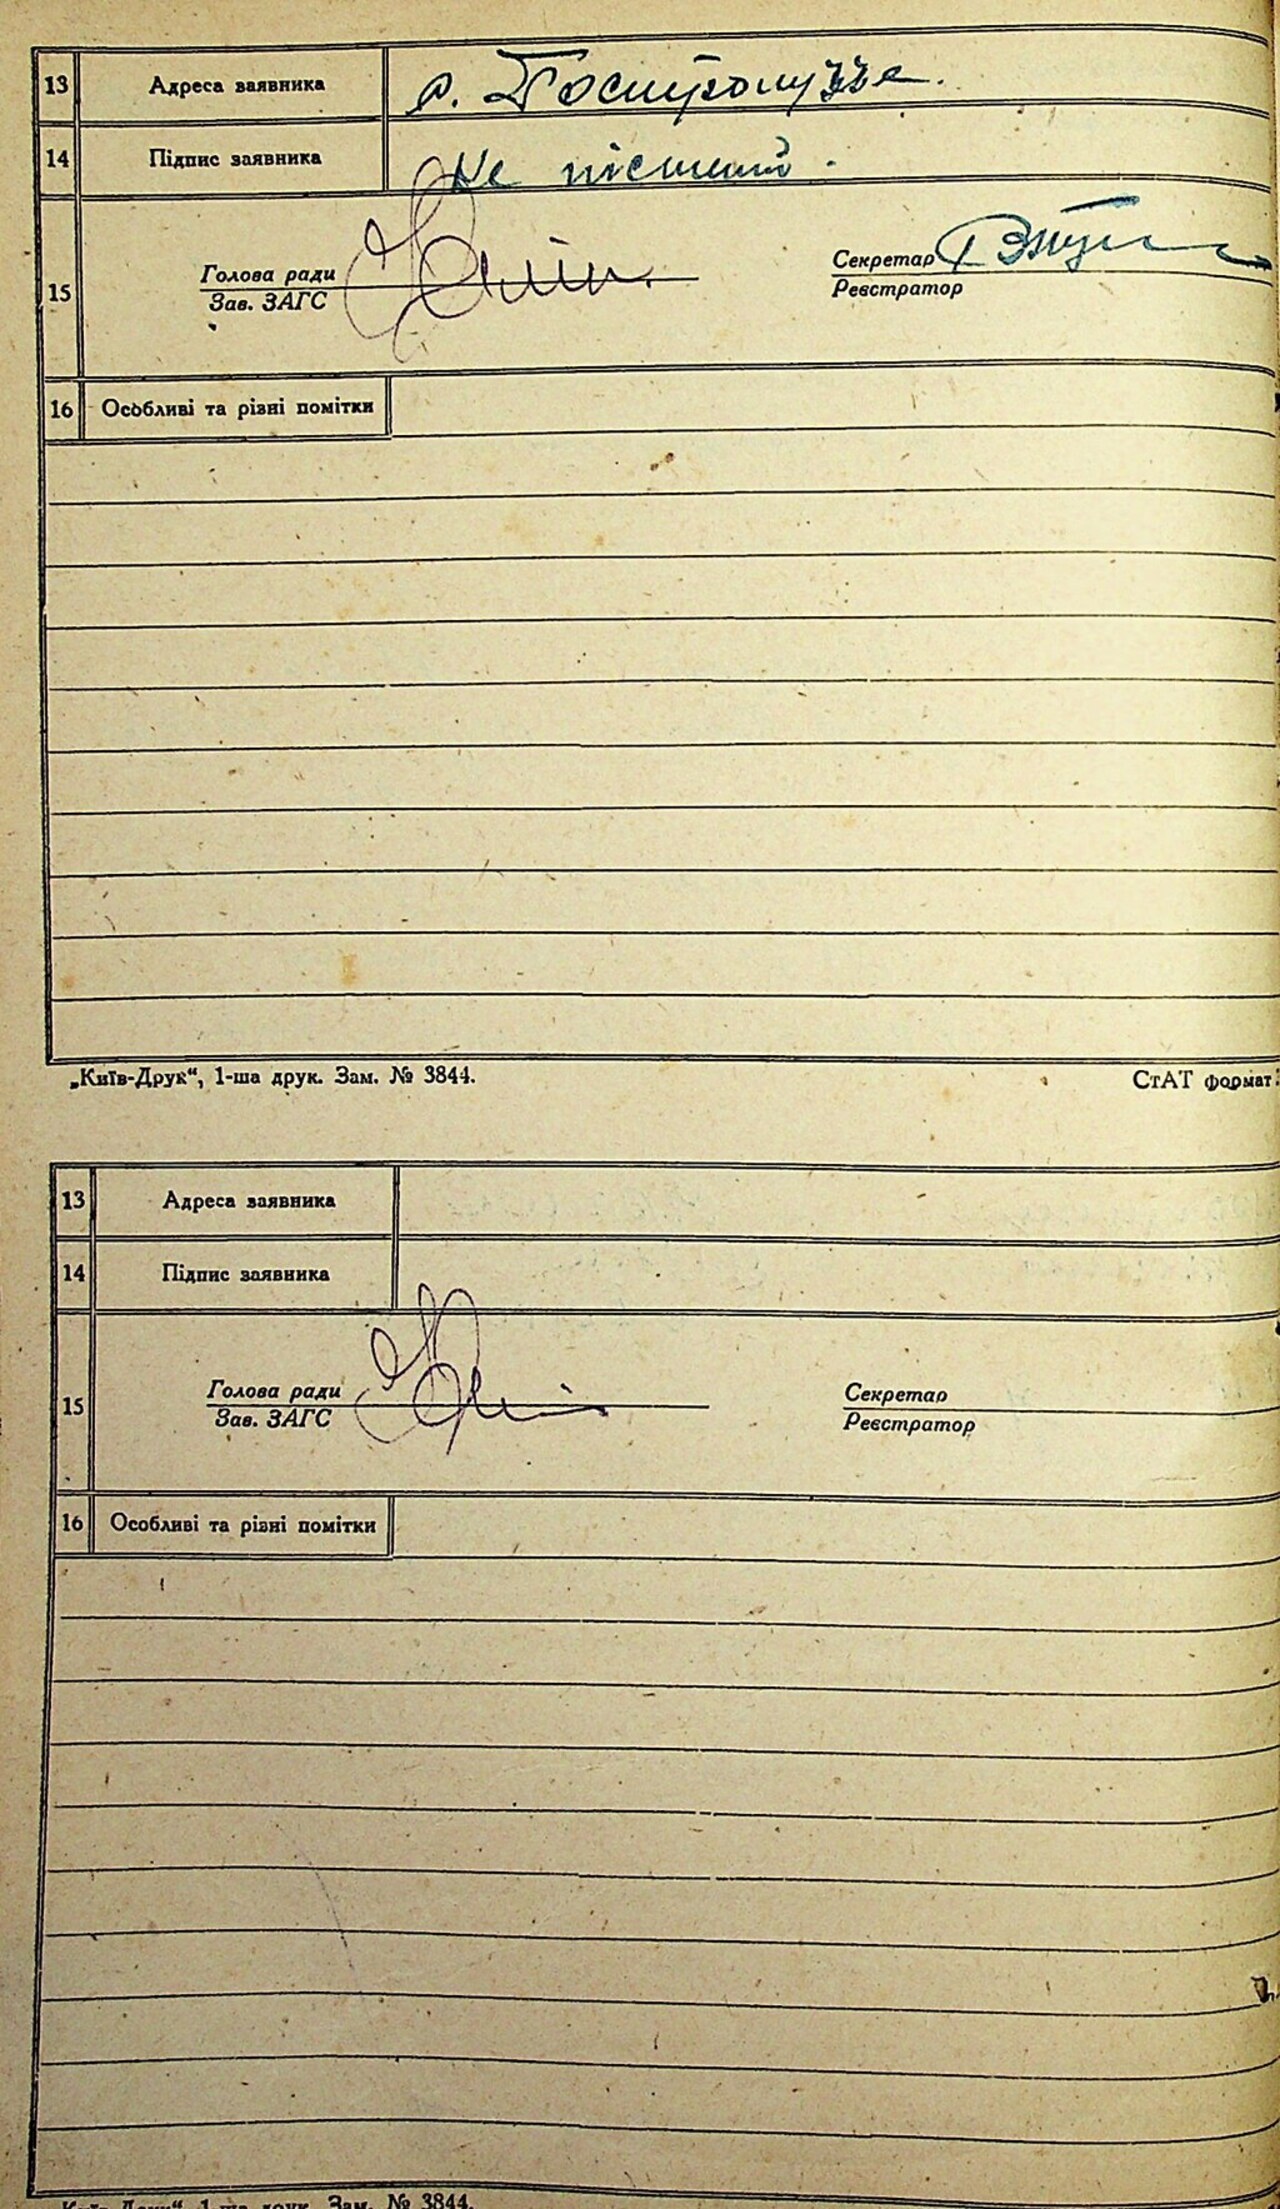 13 Адреса заявника
14 Підпис заявника Не пісьмений.
15 Голова ради Секретар
Зав. ЗАГС Реєстратор
16 Особливі та різні помітки
„Київ-Друк“, 1-ша друк. Зам. № 3844. СтАТ формат
13 Адреса заявника
14 Підпис заявника
15 Голова ради Секретар
Зав. ЗАГС Реєстратор
16 Особливі та різні помітки
„Київ-Друк“, 1-ша друк. Зам. № 3844.